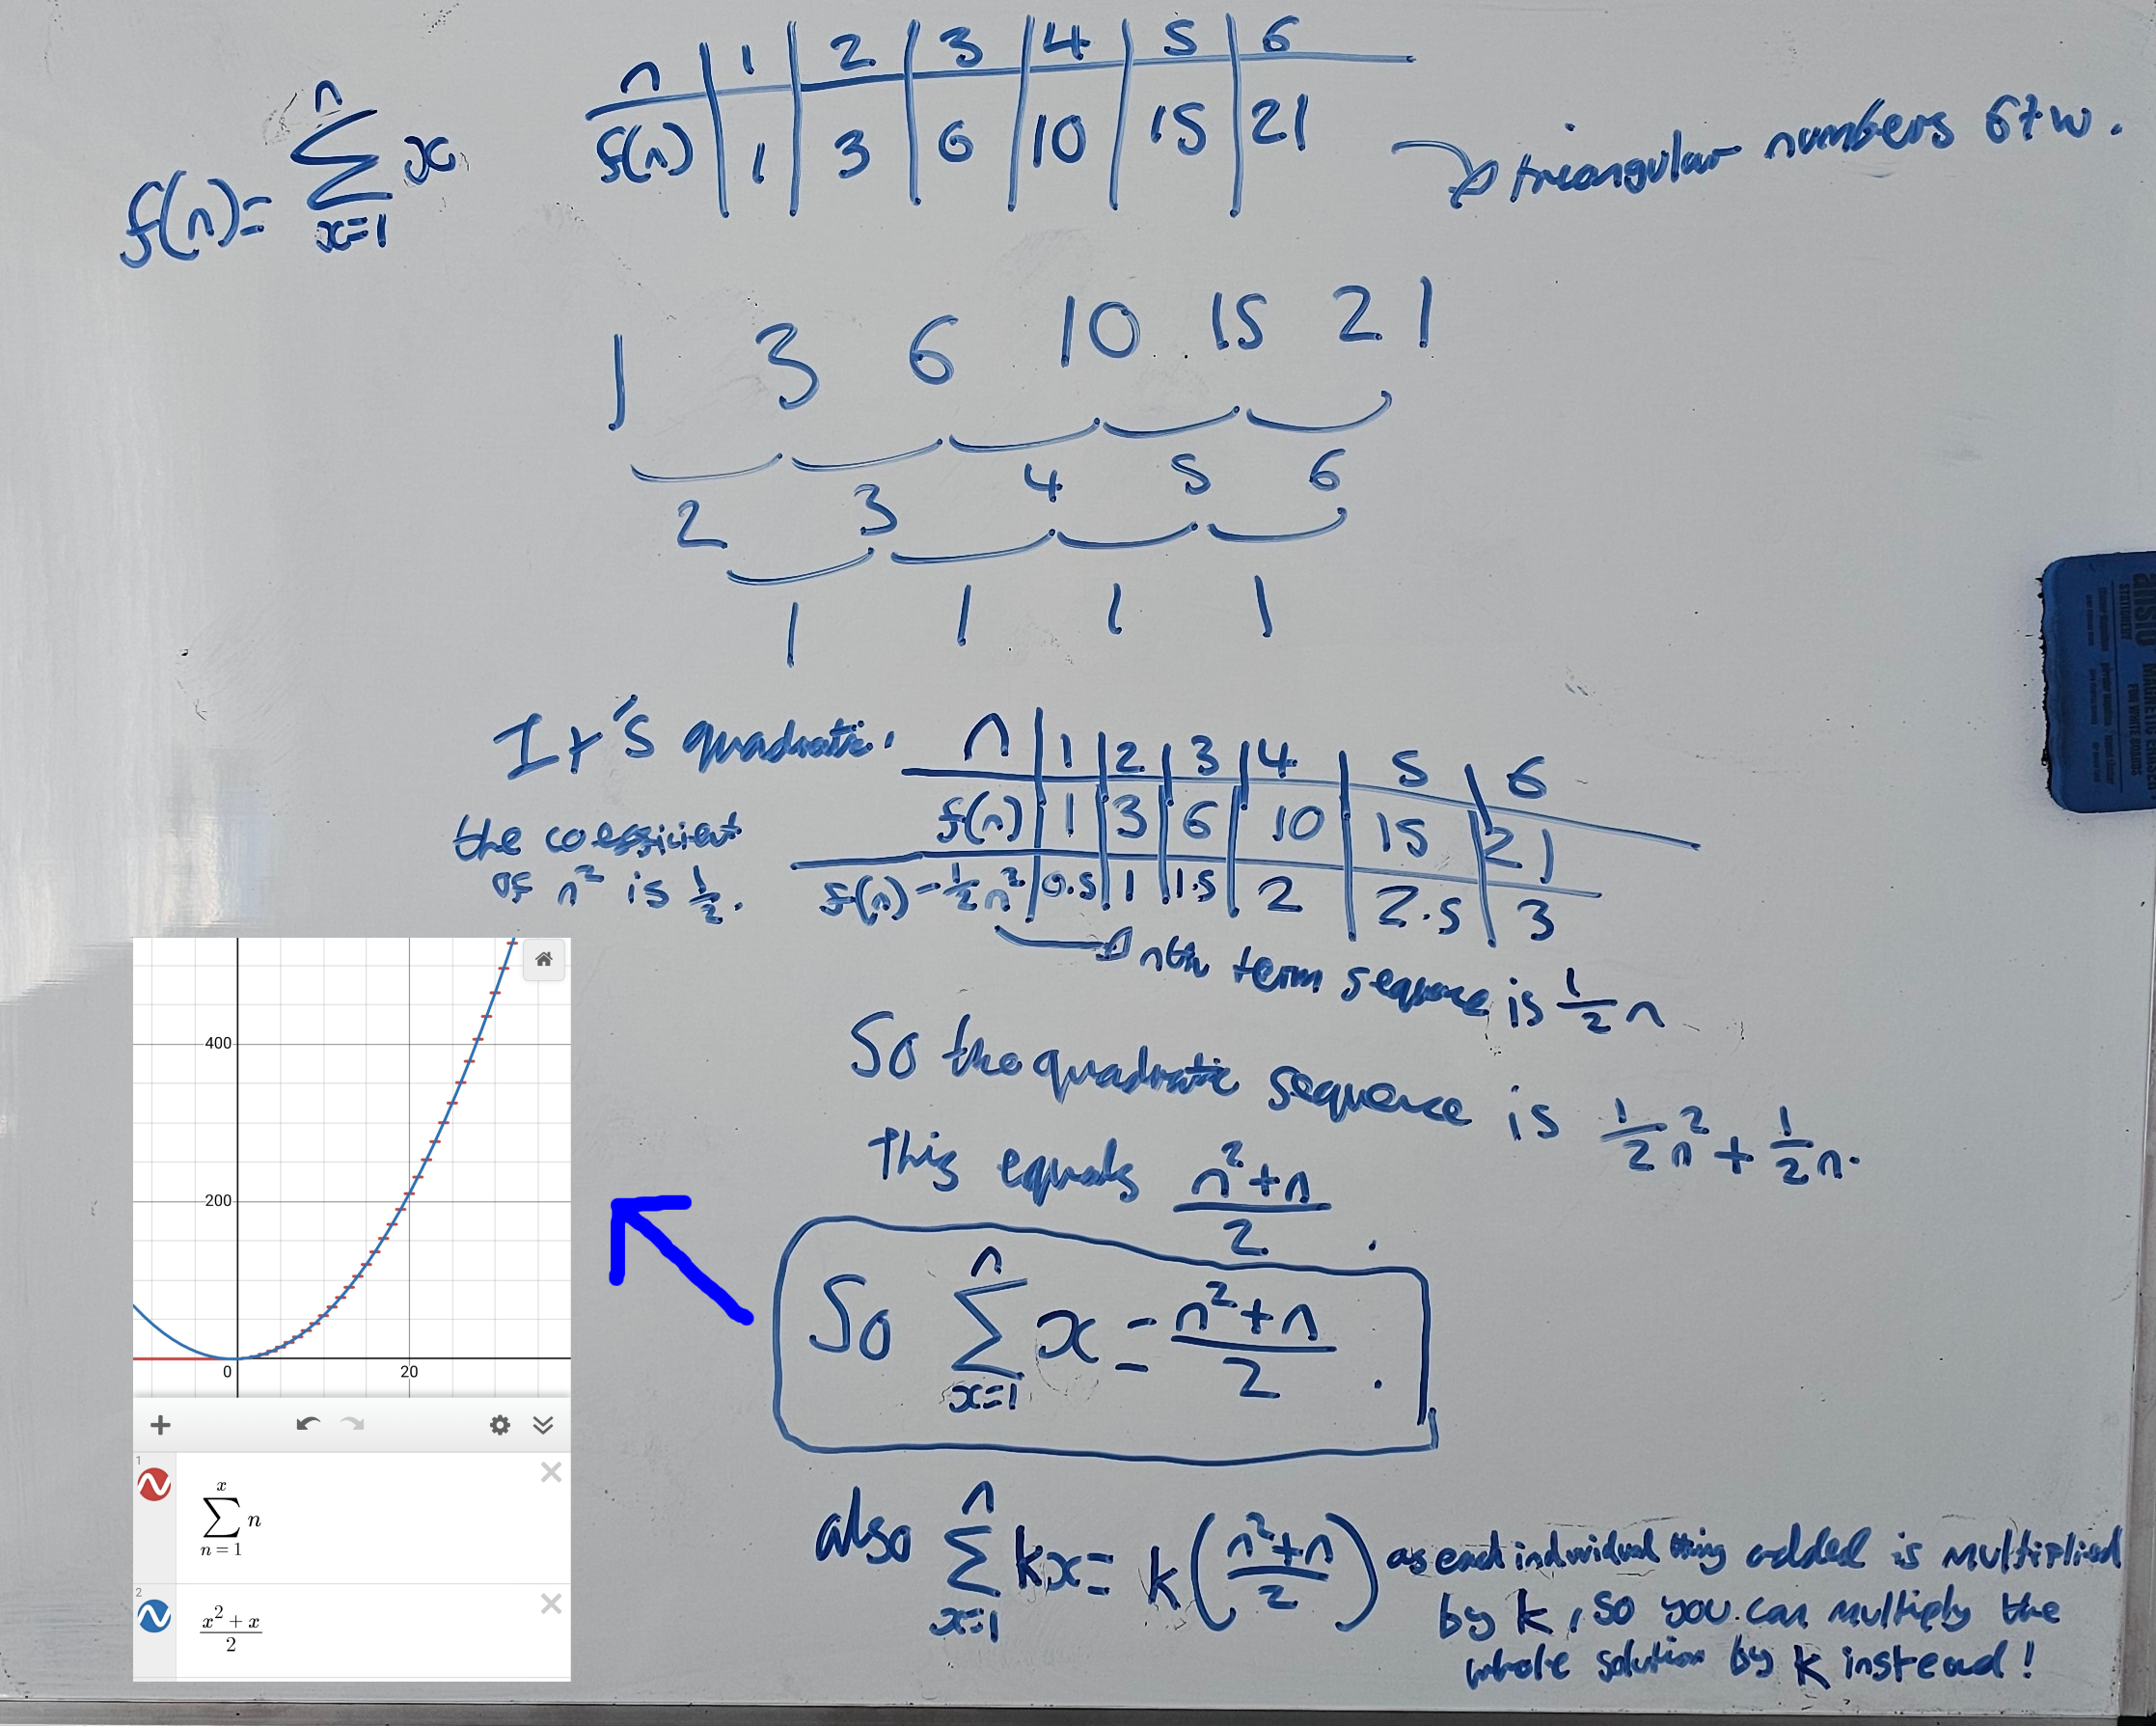 f(n) = ∑_{x=1}^{n} x
n | 1 | 2 | 3 | 4 | 5 | 6
f(n) | 1 | 3 | 6 | 10 | 15 | 21
→ triangular numbers btw.
1 3 6 10 15 21
2 3 4 5 6
1 1 1 1
It's quadratic.
the coefficient
of n² is 1/2.
n | 1 | 2 | 3 | 4 | 5 | 6
f(n) | 1 | 3 | 6 | 10 | 15 | 21
f(n) - 1/2 n² | 0.5 | 1 | 1.5 | 2 | 2.5 | 3
→ nth term sequence is 1/2 n
So the quadratic sequence is 1/2 n² + 1/2 n.
This equals (n² + n)/2.
So ∑_{x=1}^{n} x = (n² + n)/2.
also ∑_{x=1}^{n} kx = k((n² + n)/2) as each individual thing added is multiplied
by k, so you can multiply the
whole solution by k instead!
400
200
0 20
1
∑_{n=1}^{x} n
2
(x² + x)/2